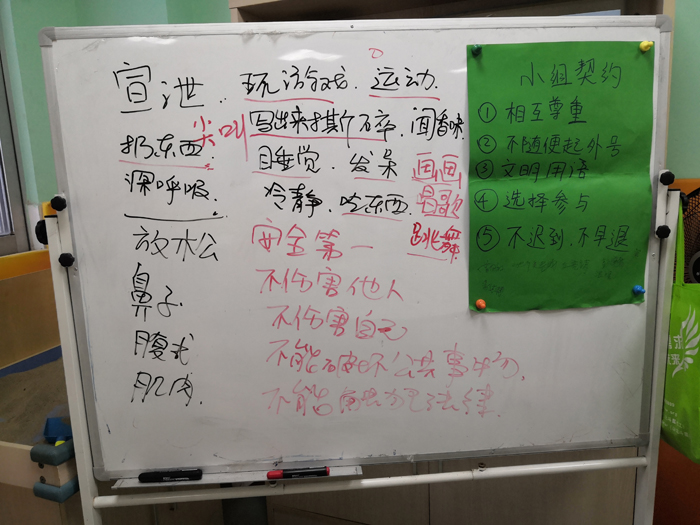 宣泄.. 玩游戏. 运动.
尖叫 写出来撕碎. 闻香味
扔东西. 睡觉. 发呆 画画
深呼吸. 冷静. 吃东西. 唱歌
跳舞
放松
鼻子
腹式
肌肉.
安全第一
不伤害他人
不伤害自己
不能破坏公共事物.
不能触犯法律.
小组契约
① 相互尊重
② 不随便起外号
③ 文明用语
④ 选择参与
⑤ 不迟到.不早退